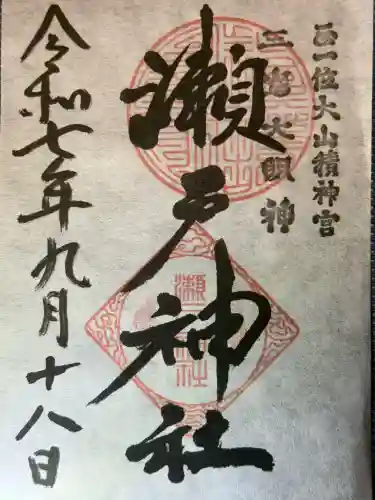 正一位大山積神宮
三嶋大明神
瀬戸神社
令和七年九月十八日
瀬
社